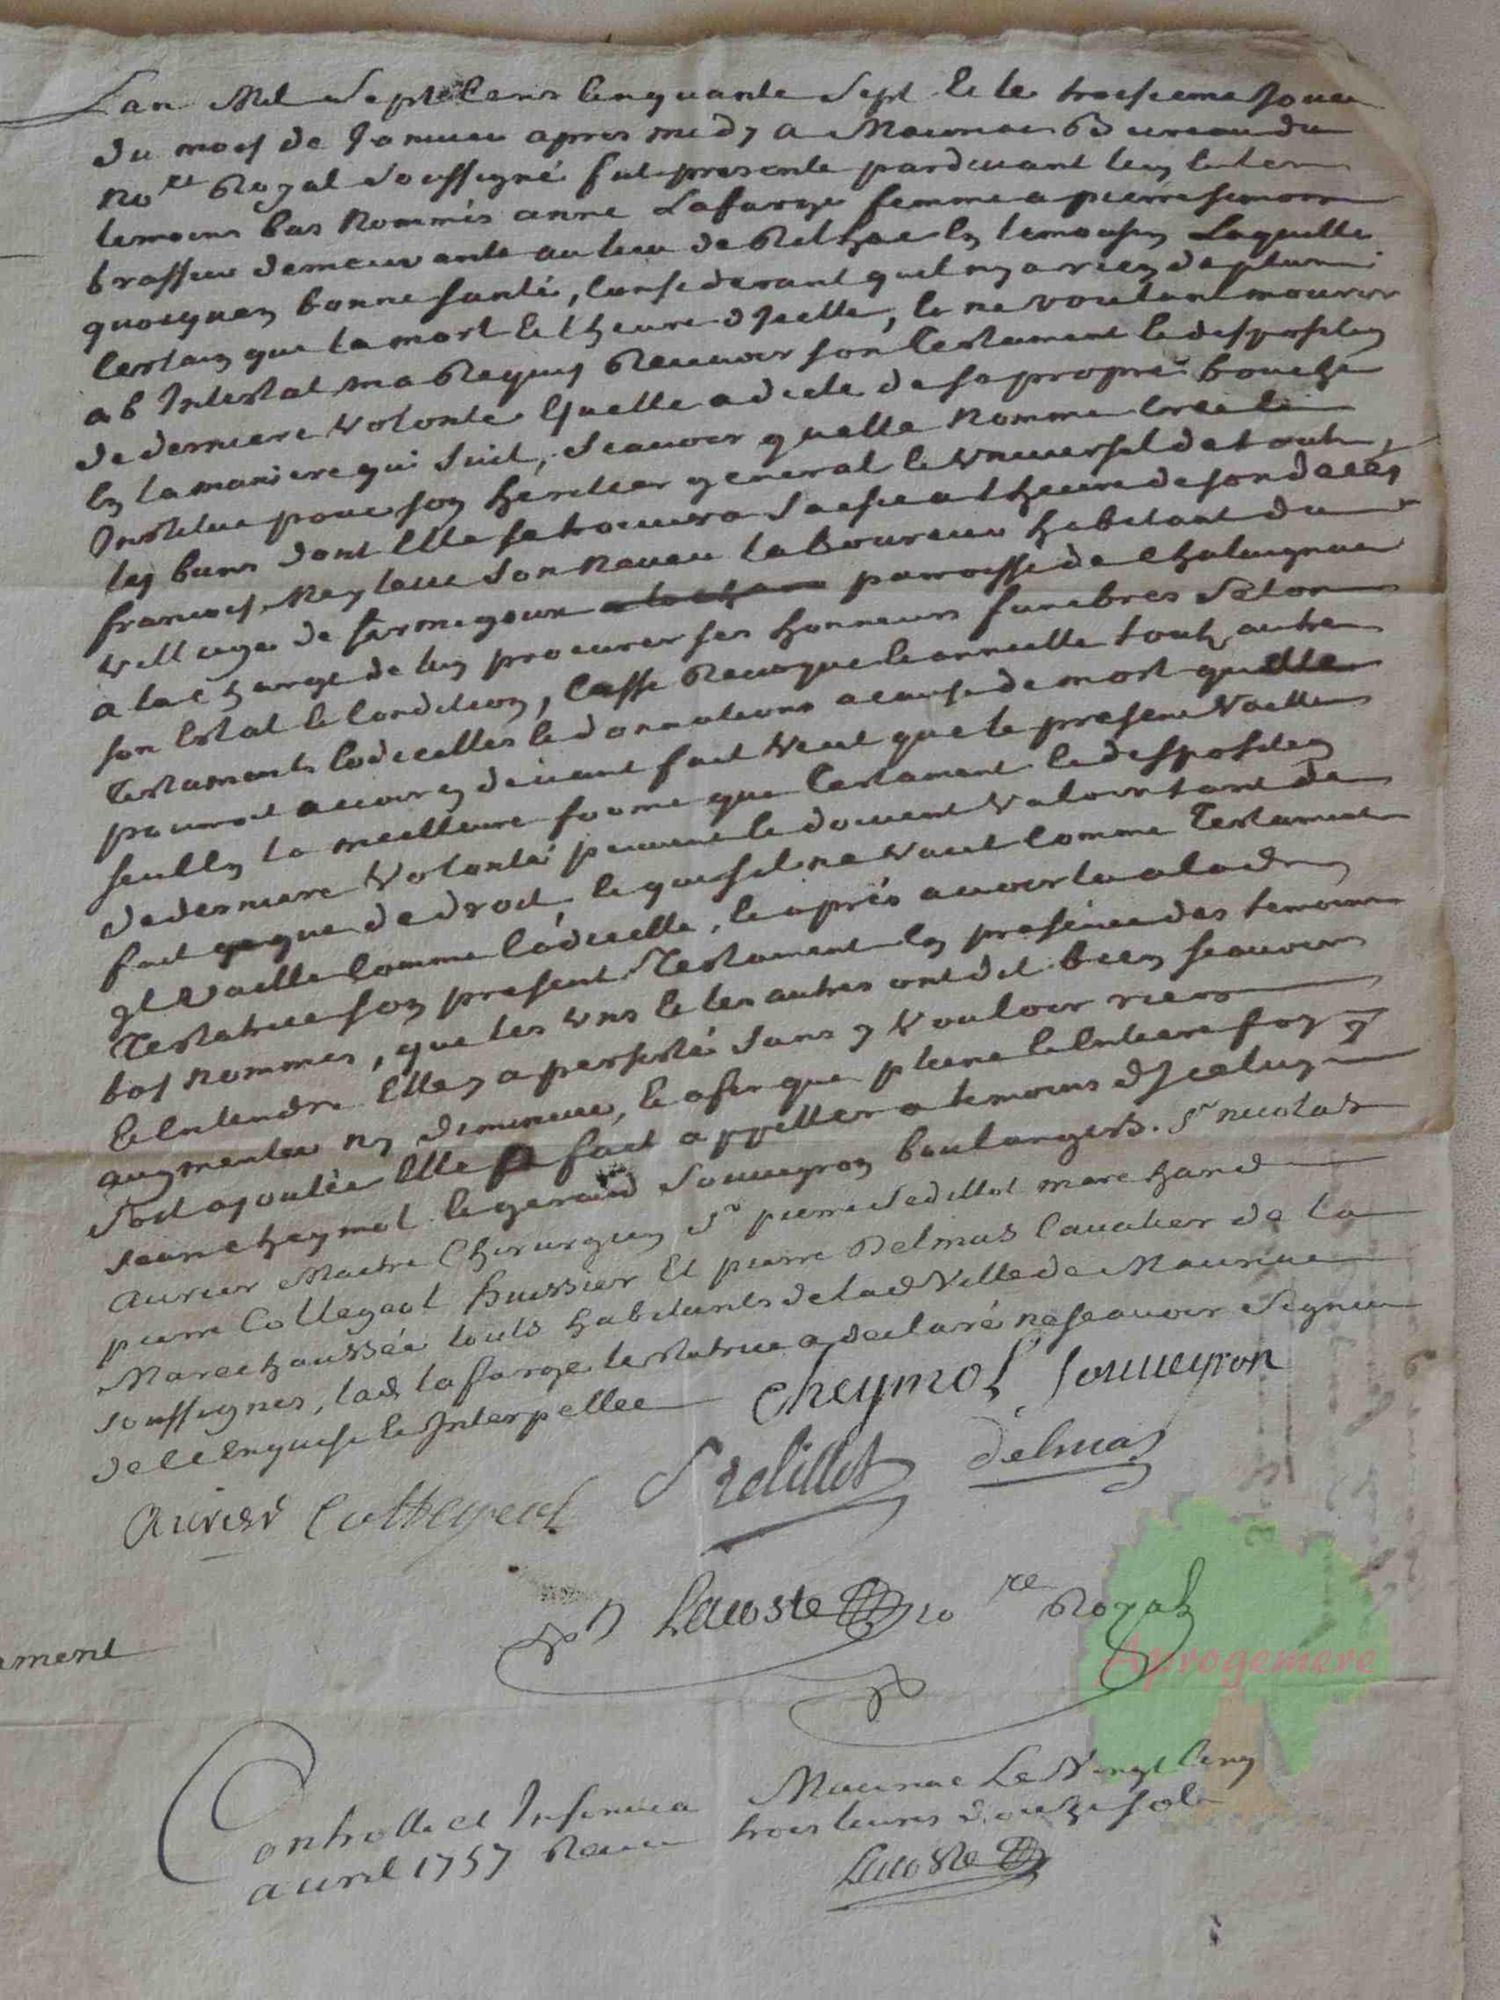 Lan Mil Sept Cens Cinquante Sept Et le troisieme Jour
du mois de Janvier apres midy a Mauriac Bureau du
No.re Royal Soussigné fut presente pardevant luy Et les
temoins bas Nommés anne Lafarge femme a pierre simon
brassier demeurante au lieu de Relhac En limousin Laquelle
quoyquen bonne santé, Considerant quil ny a rien de plus
Certain que la mort Et lheure dIcelle, Et ne voulant mourir
ab Intestat ma Requis Recevoir son Testament Et disposition
de derniere Volonté Quelle a dicté de sa propre bouche
En la maniere qui suit, Scavoir quelle Nomme Crée Et
Institue pour son heritier general Et Universel de touts
les biens dont Elle se trouvera saisie a lheure de son deces
francois Neyleur son Neveu laboureur habitant du
village de parroisse de Chalvignac
a la Charge de luy procurer ses honneurs funebres Selon
son Estat Et Condition, Casse Revoque Et annulle touts autres
Testaments Codicelles Et donnations a cause de mort quelle
pourroit avoir cy devant fait Veut que le present Vaille
seul En la meilleure forme que Testament Et disposition
de derniere Volonté peuvent Et doivent Valoir tant de
fait que de droit, Et que sil ne Vaut Comme Testament
yl Vaille Comme Codicelle, Et aprés avoir lu a lad
Testatrice son present Testament En presence des temoins
bas nommes, que les uns Et les autres ont dit bien scavoir
Et Entendre Elle y a persisté sans y Vouloir rien
augmenter ny diminuer, Et afin que pleine Et Entiere foy y
soit ajoutée Elle fait appeller a temoins dIceluy
Jean cheymol Et geraud Souveyron boulangers. Sr nicolas
Aurier Maitre Chirurgien Sr pierre Sedillot marchand
pierre Collegeol huissier Et pierre Delmas Cavalier de la
Marechaussée touts habitants de lad Ville de Mauriac
soussignes, lad lafarge testatrice a declaré ne scavoir signer
de ce Enquise Et Interpellee
Cheymol Souveyron
Aurier Sedillot Delmas
Lacoste no re Royal
ament
Aprogemere
Controllé et Insinué a Mauriac Le Vingt Cinq
avril 1757 Receu trois livres douze sols
Lacoste